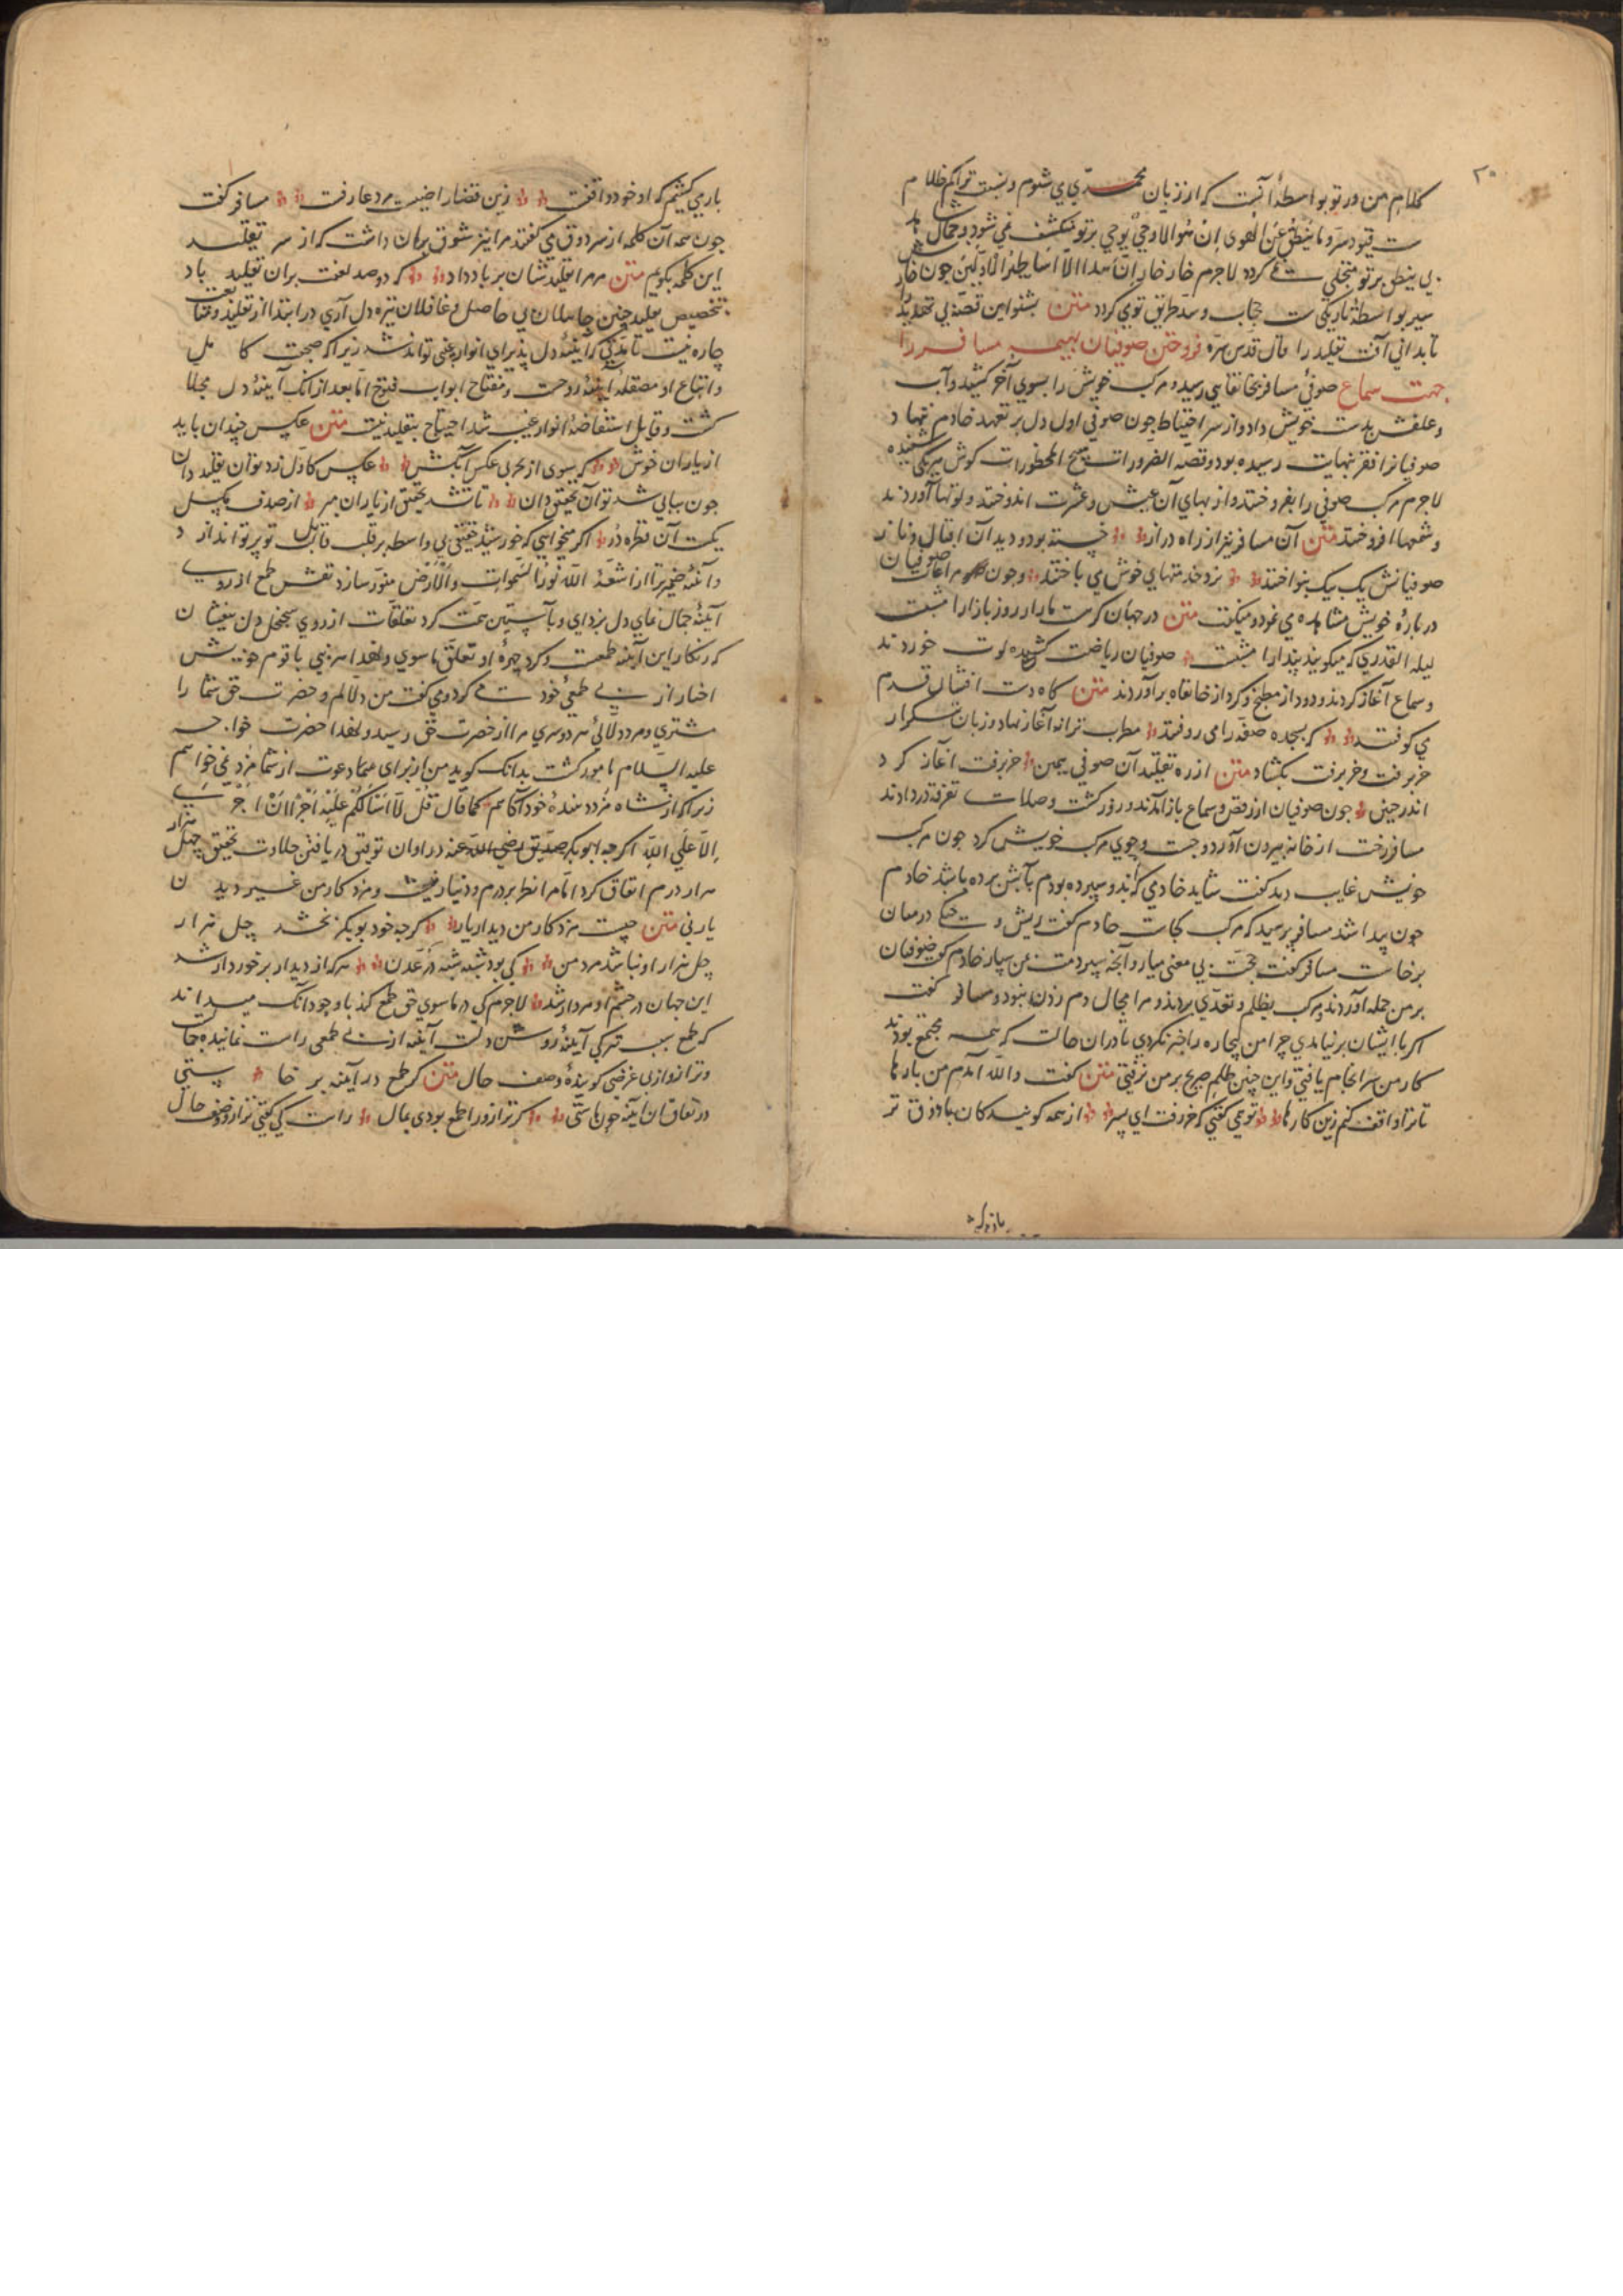 ۲۰
کلام من در تو بواسطهٔ آنست که از زبان محمدی می شنوم و نسبت تراکم ظلام
قیود سر و ما ینطق عن الهوی ان هو الا وحی یوحی بر تو منکشف نمی شود و جمال
بی ینطق بر تو متجلی نمی گردد لاجرم خار خار ان هذا الا اساطیر الاولین چون خار
سیر بواسطهٔ تاریکی حجاب و سد طریق تو می گردد متن بشنو این قصه پی تهدید را
تا بدانی آفت تقلید را قال قدس سره فروختن صوفیان بهیمه مسافر را
جهت سماع صوفی مسافر بخانقاهی رسید و مرکب خویش را بسوی آخر کشید و آب
و علفش بدست خویش داد و از سر احتیاط چون صوفی اول دل بر تعهد خادم ننهاد
صوفیانرا فقر بنهایت رسیده بود و قصهٔ الضرورات تبیح المحظورات کوش هریکی شنیده
لاجرم مرکب صوفی را بفروختند و از بهای آن عیش و عشرت اندوختند و لوتها آوردند
و شمعها افروختند متن آن مسافر نیز از راه دراز خسته بود و دید آن اقبال و ناز
صوفیانش یک بیک بنواختند نرد خدمتهای خوش می باختند و چون مراعات صوفیان
در بارهٔ خویش مشاهده می نمود و میگفت متن در جهان کرست ما را روز بازارا مشبت
لیله القدری که میگویند پندارا مشبت صوفیان ریاضت کشیده لوت خوردند
و سماع آغاز کردند و دود از مطبخ و گرد از خانقاه برآوردند متن گاه دست افشان قدم
می کوفتند که بسجده صفه را می روفتند مطرب ترانه آغاز نهاد و زبان بتکرار
خر برفت و خر برفت بگشاد متن از ره تقلید آن صوفی همین خر برفت آغاز کرد
اندر حنین چون صوفیان از رقص و سماع باز آمدند و روز گشت و صلات تفرقه در دادند
مسافر رخت از خانه بیرون آورد و جست و جوی مرکب خویش کرد چون مرکب
خویش غایب دید گفت شاید خادمی که بدو سپرده بودم بآبش برده باشد خادم
چون پیدا شد مسافر پرسید که مرکب کجاست خادم گفت ریش و جنگی در میان
برخاست مسافر گفت حجت بی معنی میار و آنچه سپردمت بمن سپار خادم گفت صوفیان
بر من حمله آوردند و مرکب بظلم و تعدی بردند و مرا مجال دم زدن نبود و مسافر گفت
اگر با ایشان بر نیامدی چرا من بیچاره را خبر نکردی تا در آن حالت که همه مجتمع بودند
کار من سرانجام یافتی و این چنین ظلم صریح بر من نرفتی متن گفت والله آمدم من بارها
تا ترا واقف کنم زین کارها تو همی گفتی که خر رفت ای پسر از همه گویندگان با ذوق تر
باری گفتم که او خود واقفست زین قضا راضیست مرد عارفست مسافر گفت
چون همه آن کلمه از سر ذوق می گفتند مرا نیز شوق بر آن داشت که از سر تقلید
این کلمه بگویم متن مر مرا تقلیدشان بر باد داد که دو صد لعنت بران تقلید باد
بتخصیص تقلید چنین جاهلان بی حاصل و غافلان تیره دل آری در ابتدا از تقلید و متابعت
چاره نیست تا بدانی که آینهٔ دل پذیرای انوار غیبی تواند شد زیرا که صحبت کامل
و اتباع او مصقلهٔ آینهٔ روحست و مفتاح ابواب فتوح اما بعد از آنک آینهٔ دل مجلا
گشت و قابل استفاضهٔ انوار غیب شد احتیاج بتقلید نیست متن عکس چندان باید
از یاران خوش که شوی از بحر بی عکس آبکش عکس کاول زد تو آن تقلید دان
چون پیاپی شد تو آن تحقیق دان تا نشد تحقیق از یاران مبر از صدف مگسل
نگشت آن قطره در اگر میخواهی که خورشید حقیقی بی واسطه بر قلب قابل تو پرتو اندازد
و آینهٔ ضمیر ترا از اشعهٔ الله نور السموات والارض منور سازد نقش طمع از روی
آینهٔ جمال نمای دل بزدای و بآستین همت گرد تعلقات از روی سجنجل دل بیفشان
که زنگار این آینه طمعست و گرد چهرهٔ او تعلق ما سوی و لهذا هر نبی با قوم خویش
اخبار از بی طمعی خود می کرد و می گفت من دلالم و حضرت حق شما را
مشتری و مزد دلالی هر دو سری مرا از حضرت حق رسید و لهذا حضرت خواجه
علیه السلام مامور گشت بدانک گوید من از برای شما دعوت از شما مزد نمی خواهم
زیرا که از شاه مزد بندهٔ خود آگاهم کما قال قل لا اسالکم علیه اجرا ان اجری
الا علی الله اگرچه ابوبکر صدیق رضی الله عنه در اوان توفیق دریافتن حلاوت تحقیق چهل هزار
هزار درم انفاق کرد اما مرا نظر بر درم و دینار نیست و مزد کار من غیر دیدن
یار نی متن چیست مزد کار من دیدار یار گرچه خود بوبکر بخشد چل هزار
چل هزار او نباشد مزد من کی بود شبه شبه در عدن هر که از دیدار برخوردار شد
این جهان در چشم او مردار شد لاجرم کی در ما سوی حق طمع کند با وجود آنک میداند
که طمع سبب تیرگی آینهٔ روشن دلست آینه از بی طمعی راست نماینده است
و ترازو از بی غرضی گویندهٔ وصف حال متن گر طمع در آینه بر خاستی
در نفاق آن آینه چون ماستی گر ترازو را طمع بودی بمال راست کی گفتی ترازو وصف حال
باری گفتم